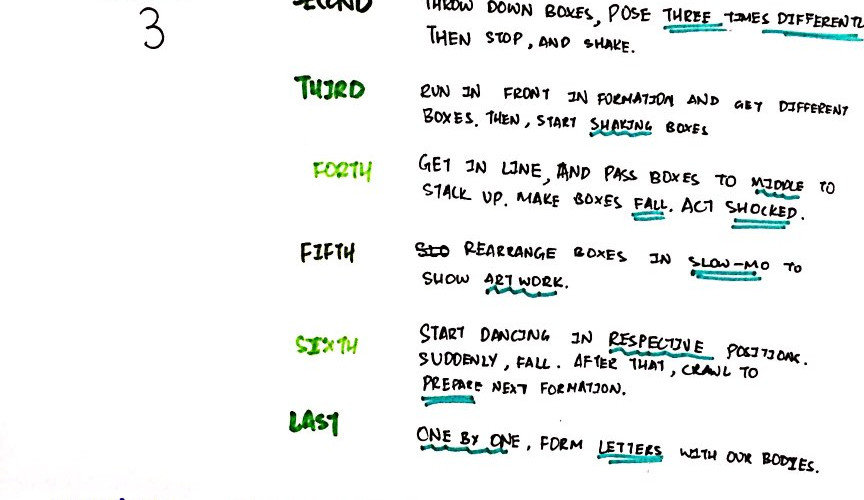 SECOND THROW DOWN BOXES, POSE THREE TIMES DIFFERENTL
3 THEN STOP, AND SHAKE.
THIRD RUN IN FRONT IN FORMATION AND GET DIFFERENT
BOXES. THEN, START SHAKING BOXES
FORTH GET IN LINE, AND PASS BOXES TO MIDDLE TO
STACK UP. MAKE BOXES FALL. ACT SHOCKED.
FIFTH REARRANGE BOXES IN SLOW-MO TO
SHOW ARTWORK.
SIXTH START DANCING IN RESPECTIVE POSITIONS.
SUDDENLY, FALL. AFTER THAT, CRAWL TO
PREPARE NEXT FORMATION.
LAST ONE BY ONE, FORM LETTERS WITH OUR BODIES.